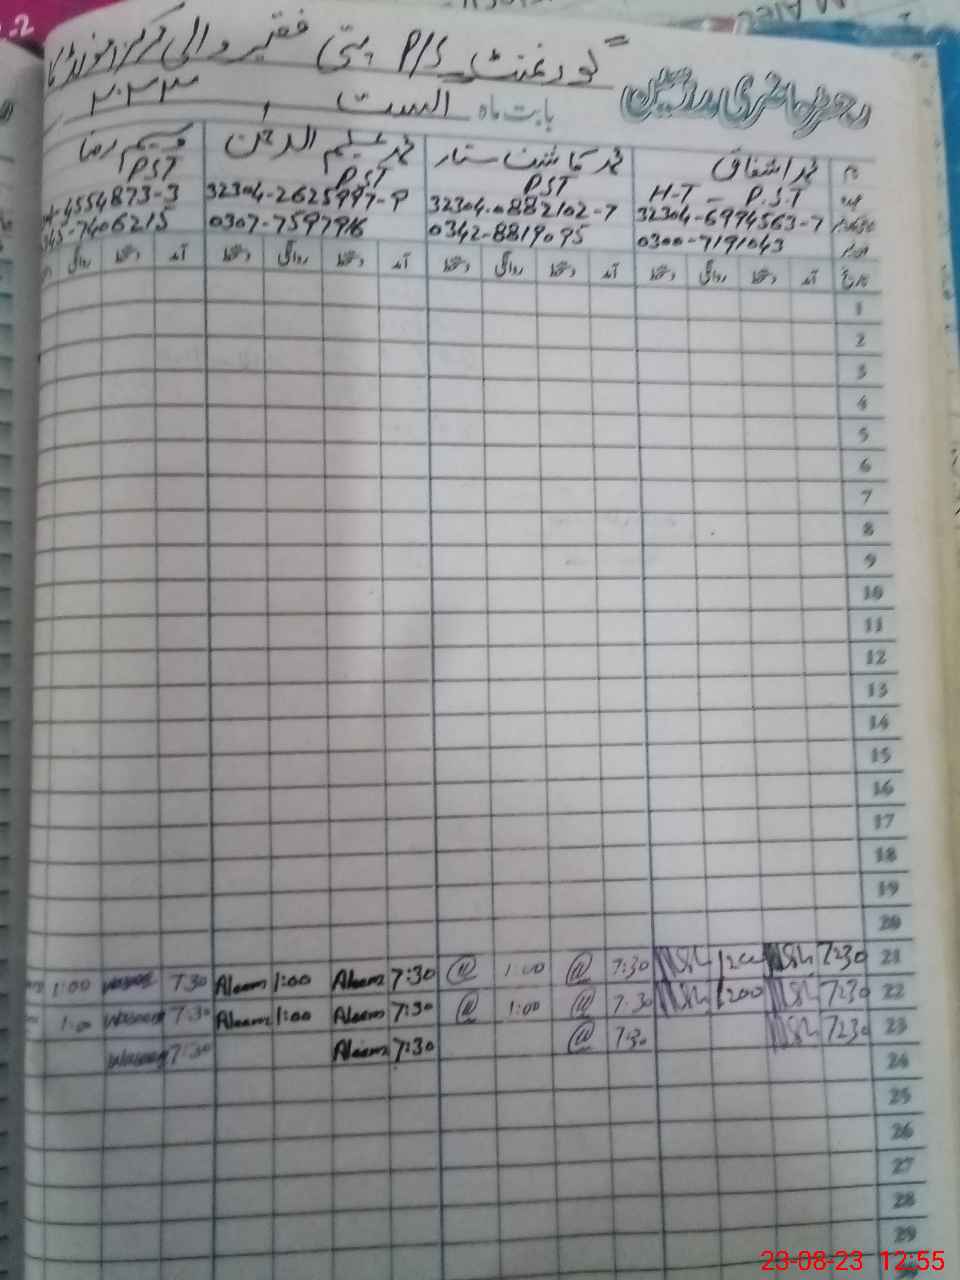 گورنمنٹ P/S بستی فقیر والی مرکز
رجسٹر حاضری مدرسین
بابت ماہ اگست ۲۰۲۳
نام محمد اشفاق محمد کاشف ستار محمد علیم الرحمٰن وسیم رضا
عہدہ H-T - P.S.T PST PST PST
32304-6994563-7 32304-0882102-7 32304-2625997-9 4554873-3
0300-7191043 0342-8819095 0307-7597916 345-7406215
تاریخ آمد دستخط روانگی دستخط آمد دستخط روانگی دستخط آمد دستخط روانگی دستخط آمد دستخط روانگی
1
2
3
4
5
6
7
8
9
10
11
12
13
14
15
16
17
18
19
20
21 7:30 1:00 7:30 @ 1:00 @ 7:30 Aleem 1:00 Aleem 7:30 Waseem 1:00
22 7:30 1:00 7:30 @ 1:00 @ 7:30 Aleem 1:00 Aleem 7:30 Waseem 1:00
23 7:30 7:30 @ 7:30 Aleem 7:30 Waseem
24
25
26
27
28
29
23-08-23 12:55